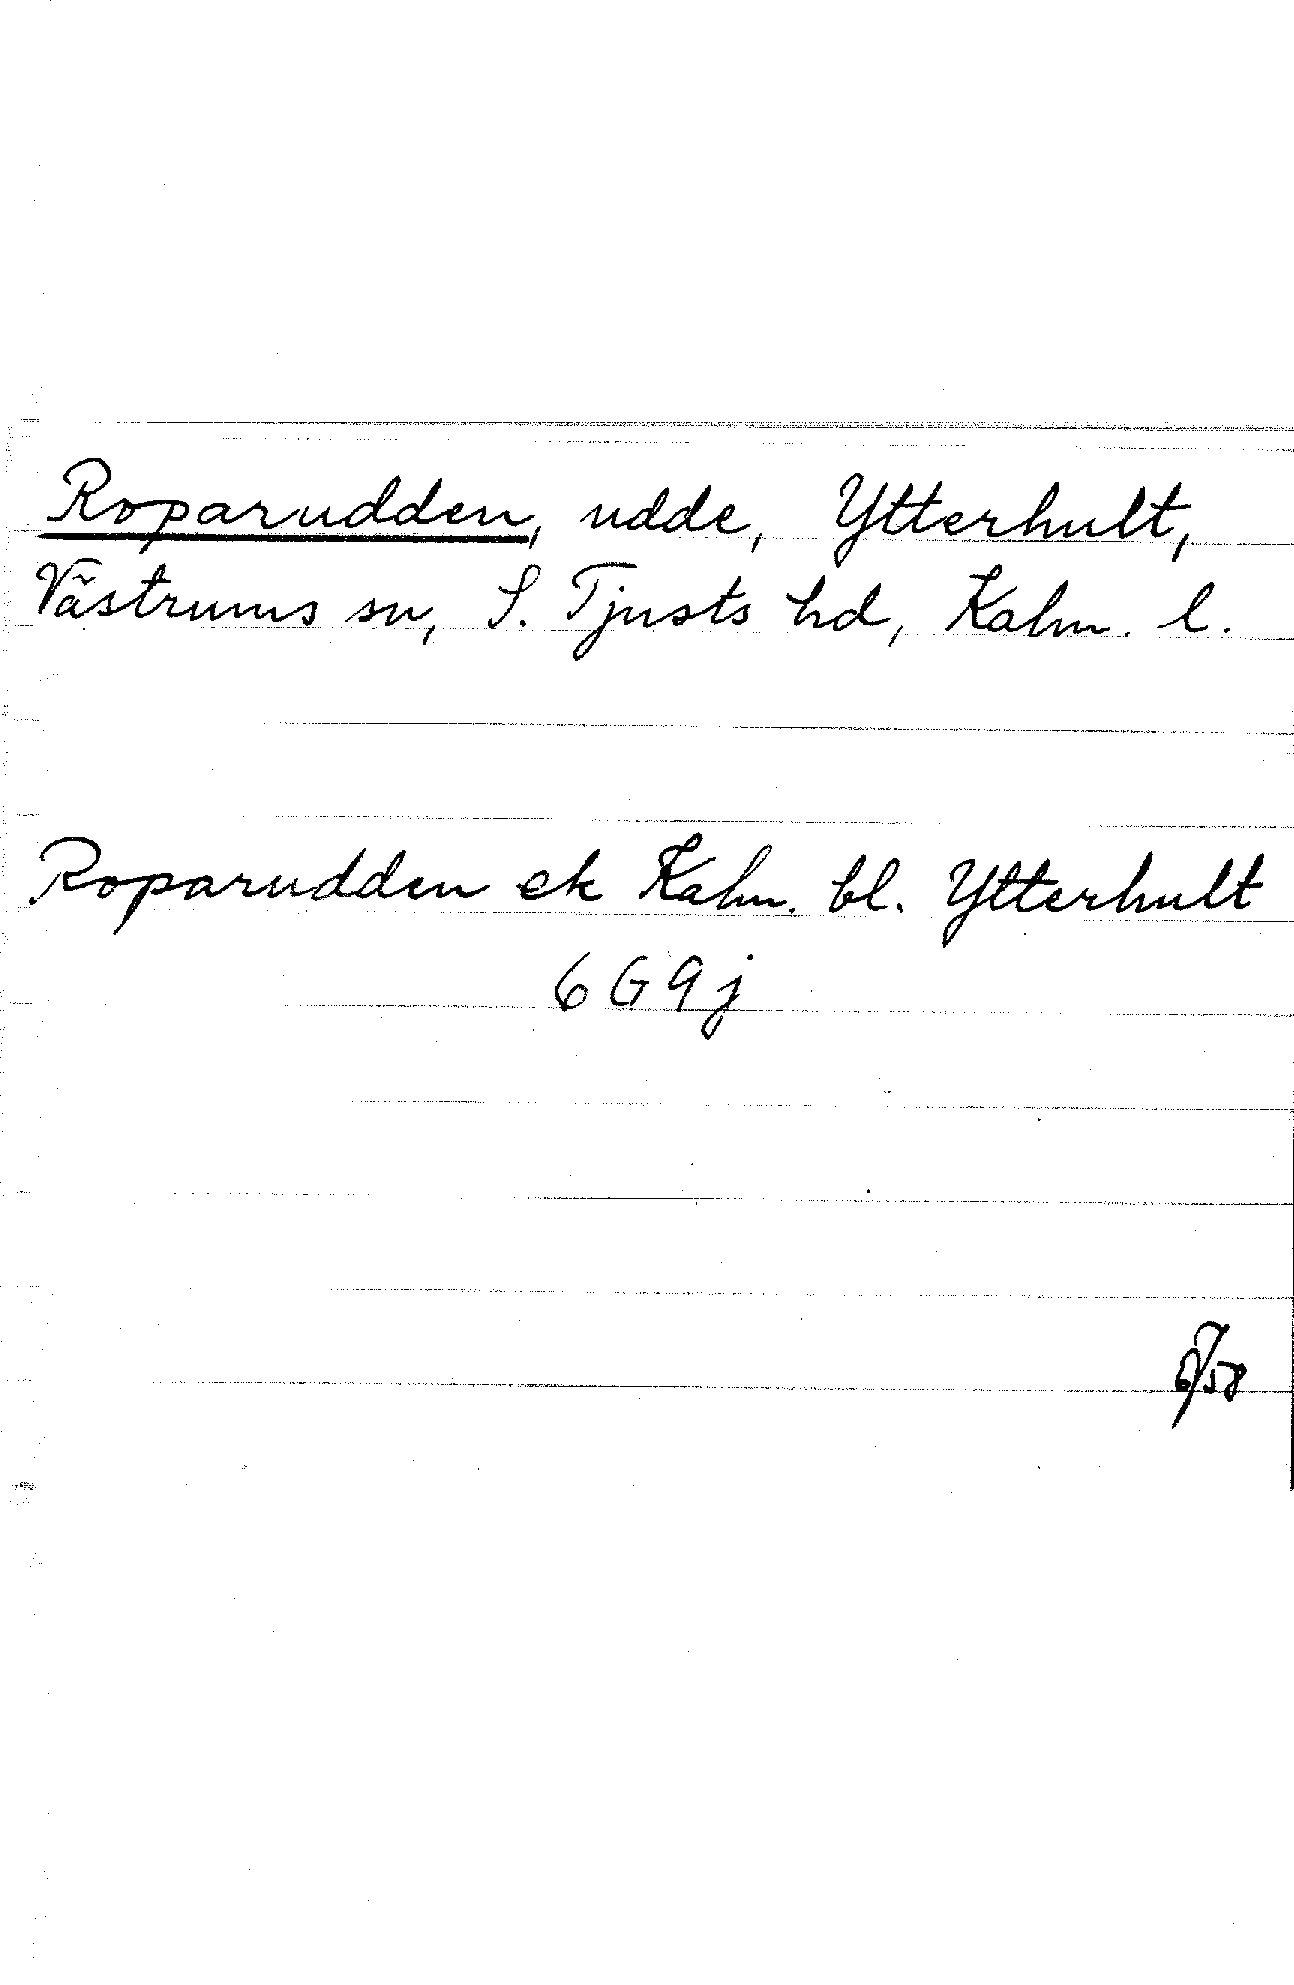 Roparudden, udde, Ytterhult,
Västrums sn, S. Tjusts hd, Kalm. l.
Roparudden ek Kalm. bl. Ytterhult
6 G 9 j